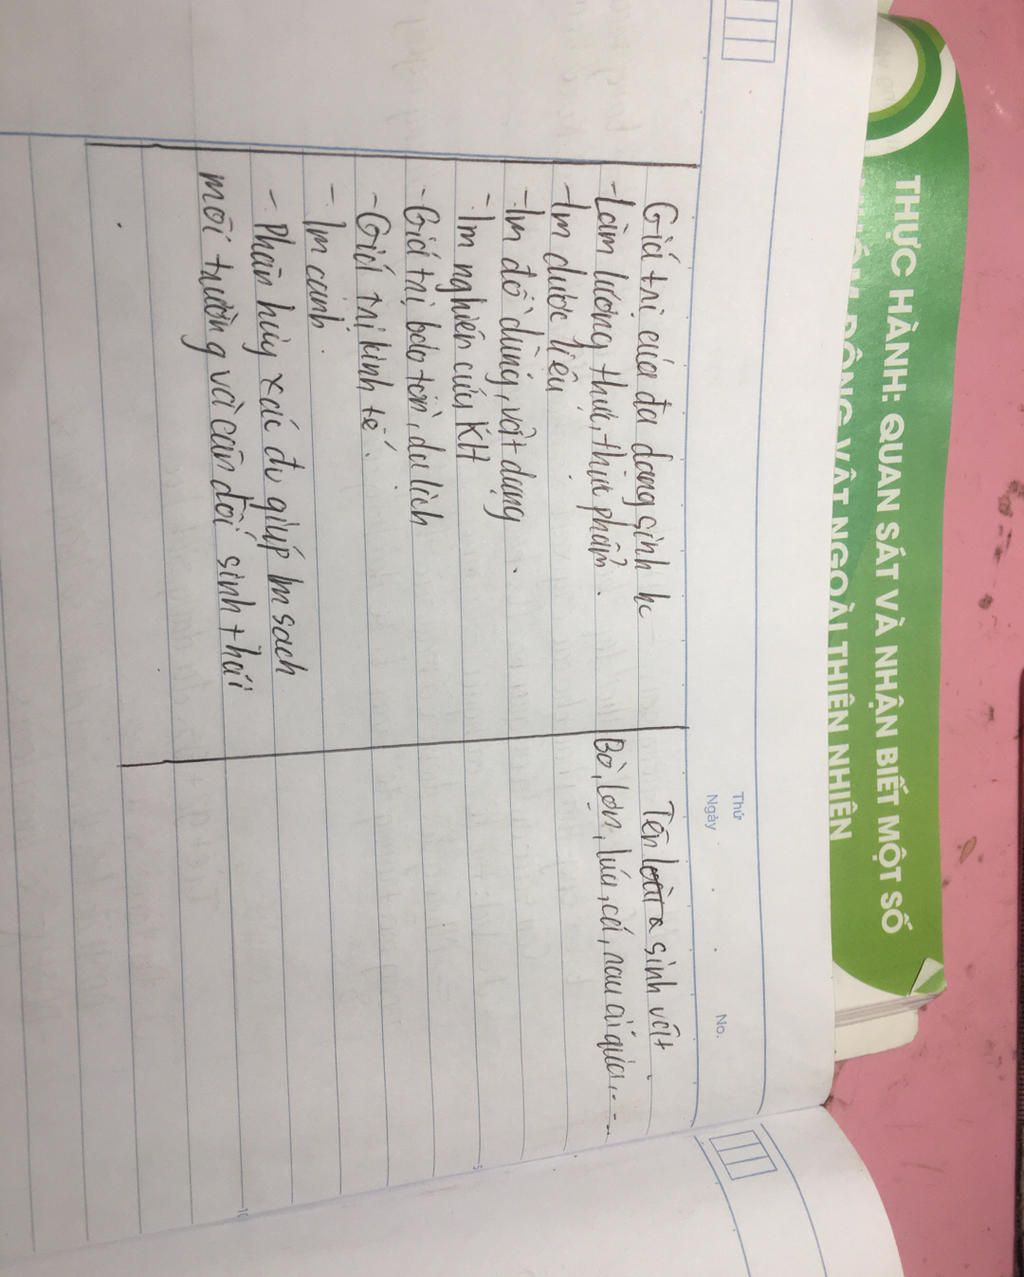 THỰC HÀNH: QUAN SÁT VÀ NHẬN BIẾT MỘT SỐ
ĐỘNG VẬT NGOÀI THIÊN NHIÊN
Thứ
Ngày
No.
Giá trị của đa dạng sinh hc
Tên loài sinh vật
-Làm lương thực, thực phẩm.
Bò, lợn, lúa, cá, rau củ quả,...
-lm dược liệu
-lm đồ dùng, vật dụng.
-lm nghiên cứu KH
-Giá trị bảo tồn, du lịch
-Giá trị kinh tế.
- lm cảnh.
- Phân hủy xác đv giúp lm sạch
môi trường và cân đối sinh thái
5
10